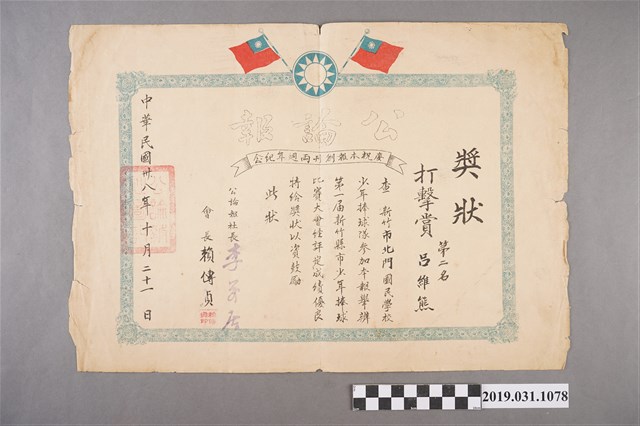 公論報
慶祝本報創刊两週年紀念
獎狀
打擊賞 第二名 呂維熊
查 新竹市北門國民學校
少年棒球隊參加本報舉辦
第一屆新竹縣市少年棒球
比賽大會經評定成績優良
特給獎狀以資鼓勵
此狀
公論報社長 李萬居
會長 賴傳貞
中華民國卅八年十月二十一日
2019.031.1078